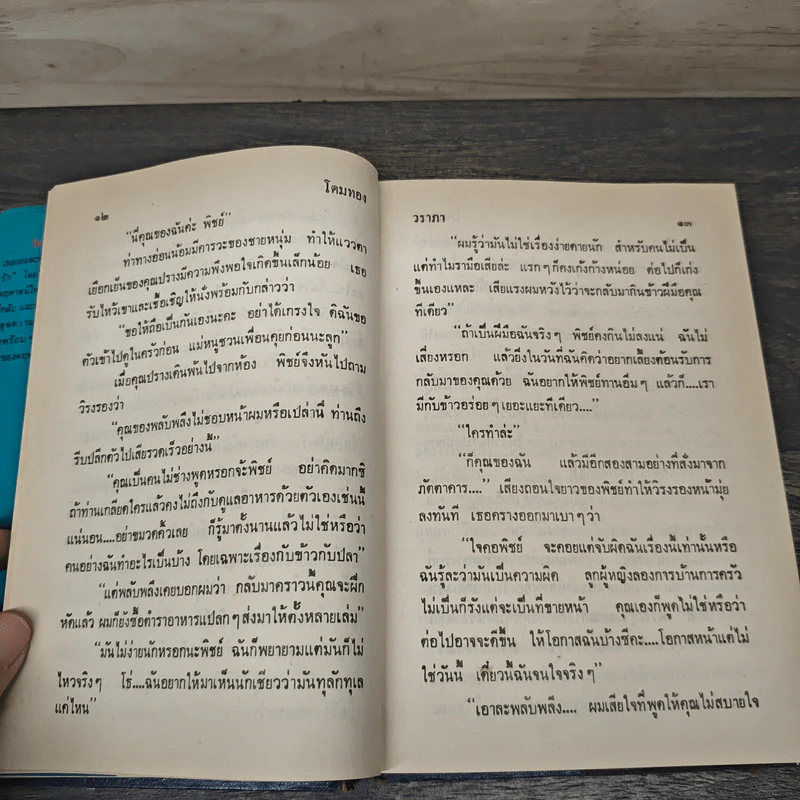 ๑๒
โดมทอง
“นี่คุณของฉันค่ะ พิชย์”
ท่าทางอ่อนน้อมมีคารวะของชายหนุ่ม ทำให้แววตา
เยือกเย็นของคุณปรางมีความพึงพอใจเกิดขึ้นเล็กน้อย เธอ
รับไหว้เขาและเชื้อเชิญให้นั่งพร้อมกับกล่าวว่า
“ขอให้ถือเป็นกันเองนะคะ อย่าได้เกรงใจ ดิฉันขอ
ตัวเข้าไปดูในครัวก่อน แม่หนูชวนเพื่อนคุยก่อนนะลูก”
เมื่อคุณปรางเดินพ้นไปจากห้อง พิชย์จึงหันไปถาม
วิรงรองว่า
“คุณของพลับพลึงไม่ชอบหน้าผมหรือเปล่านี่ ท่านถึง
รีบปลีกตัวไปเสียรวดเร็วอย่างนี้”
“คุณเป็นคนไม่ช่างพูดหรอกจ้ะพิชย์ อย่าคิดมากซิ
ถ้าท่านเกลียดใครแล้วคงไม่ถึงกับดูแลอาหารด้วยตัวเองเช่นนี้
แน่นอน....อย่าขมวดคิ้วเลย ก็รู้มาตั้งนานแล้วไม่ใช่หรือว่า
คนอย่างฉันทำอะไรเป็นบ้าง โดยเฉพาะเรื่องกับข้าวกับปลา”
“แต่พลับพลึงเคยบอกผมว่า กลับมาคราวนี้คุณจะฝึก
หัดแล้ว ผมก็ยังซื้อตำราอาหารแปลกๆ ส่งมาให้ตั้งหลายเล่ม”
“มันไม่ง่ายนักหรอกนะพิชย์ ฉันก็พยายามแต่มันก็ไม่
ไหวจริงๆ โธ่....ฉันอยากให้มาเห็นนักเชียวว่ามันทุลักทุเล
แค่ไหน”
วราภา
๑๓
“ผมรู้ว่ามันไม่ใช่เรื่องง่ายดายนัก สำหรับคนไม่เป็น
แต่ทำไมรามือเสียล่ะ แรกๆ ก็คงเก้งก้างหน่อย ต่อไปก็เก่ง
ขึ้นเองแหละ เสียแรงผมหวังไว้ว่าจะกลับมากินข้าวฝีมือคุณ
ทีเดียว”
“ถ้าเป็นฝีมือฉันจริงๆ พิชย์คงกินไม่ลงแน่ ฉันไม่
เสี่ยงหรอก แล้วยิ่งในวันที่ฉันคิดว่าอยากเลี้ยงต้อนรับการ
กลับมาของคุณด้วย ฉันอยากให้พิชย์ทานอิ่มๆ แล้วก็....เรา
มีกับข้าวอร่อยๆ เยอะแยะทีเดียว....”
“ใครทำล่ะ”
“ก็คุณของฉัน แล้วมีอีกสองสามอย่างที่สั่งมาจาก
ภัตตาคาร....” เสียงถอนใจยาวของพิชย์ทำให้วิรงรองหน้ามุ่ย
ลงทันที เธอครางออกมาเบาๆ ว่า
“ใจคอพิชย์ จะคอยแต่จับผิดฉันเรื่องนี้เท่านั้นหรือ
ฉันรู้ละว่ามันเป็นความผิด ลูกผู้หญิงลองการบ้านการครัว
ไม่เป็นก็รังแต่จะเป็นที่ขายหน้า คุณเองก็พูดไม่ใช่หรือว่า
ต่อไปอาจจะดีขึ้น ให้โอกาสฉันบ้างซีคะ....โอกาสหน้าแต่ไม่
ใช่วันนี้ เดี๋ยวนี้ฉันจนใจจริงๆ”
“เอาละพลับพลึง.... ผมเสียใจที่พูดให้คุณไม่สบายใจ